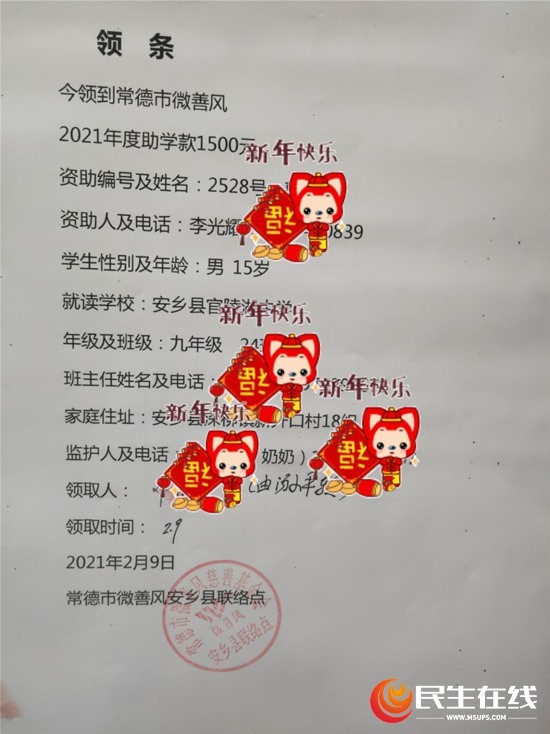 领 条
今领到常德市微善风
2021年度助学款1500元
新年快乐
资助编号及姓名：2528号
资助人及电话：李光耀
0839
福
学生性别及年龄：男 15岁
就读学校：安乡县官陵湖中学
新年快乐
年级及班级：九年级 24
班主任姓名及电话：
福
新年快乐
新年快乐
家庭住址：安乡县深柳镇 口村18组
监护人及电话 奶奶）
福
福
领取人：
领取时间：2.9
2021年2月9日
常德市微善风安乡县联络点
常德市微善风慈善基金会
微善风
安乡县联络点
民生在线
WWW.MSUPS.COM